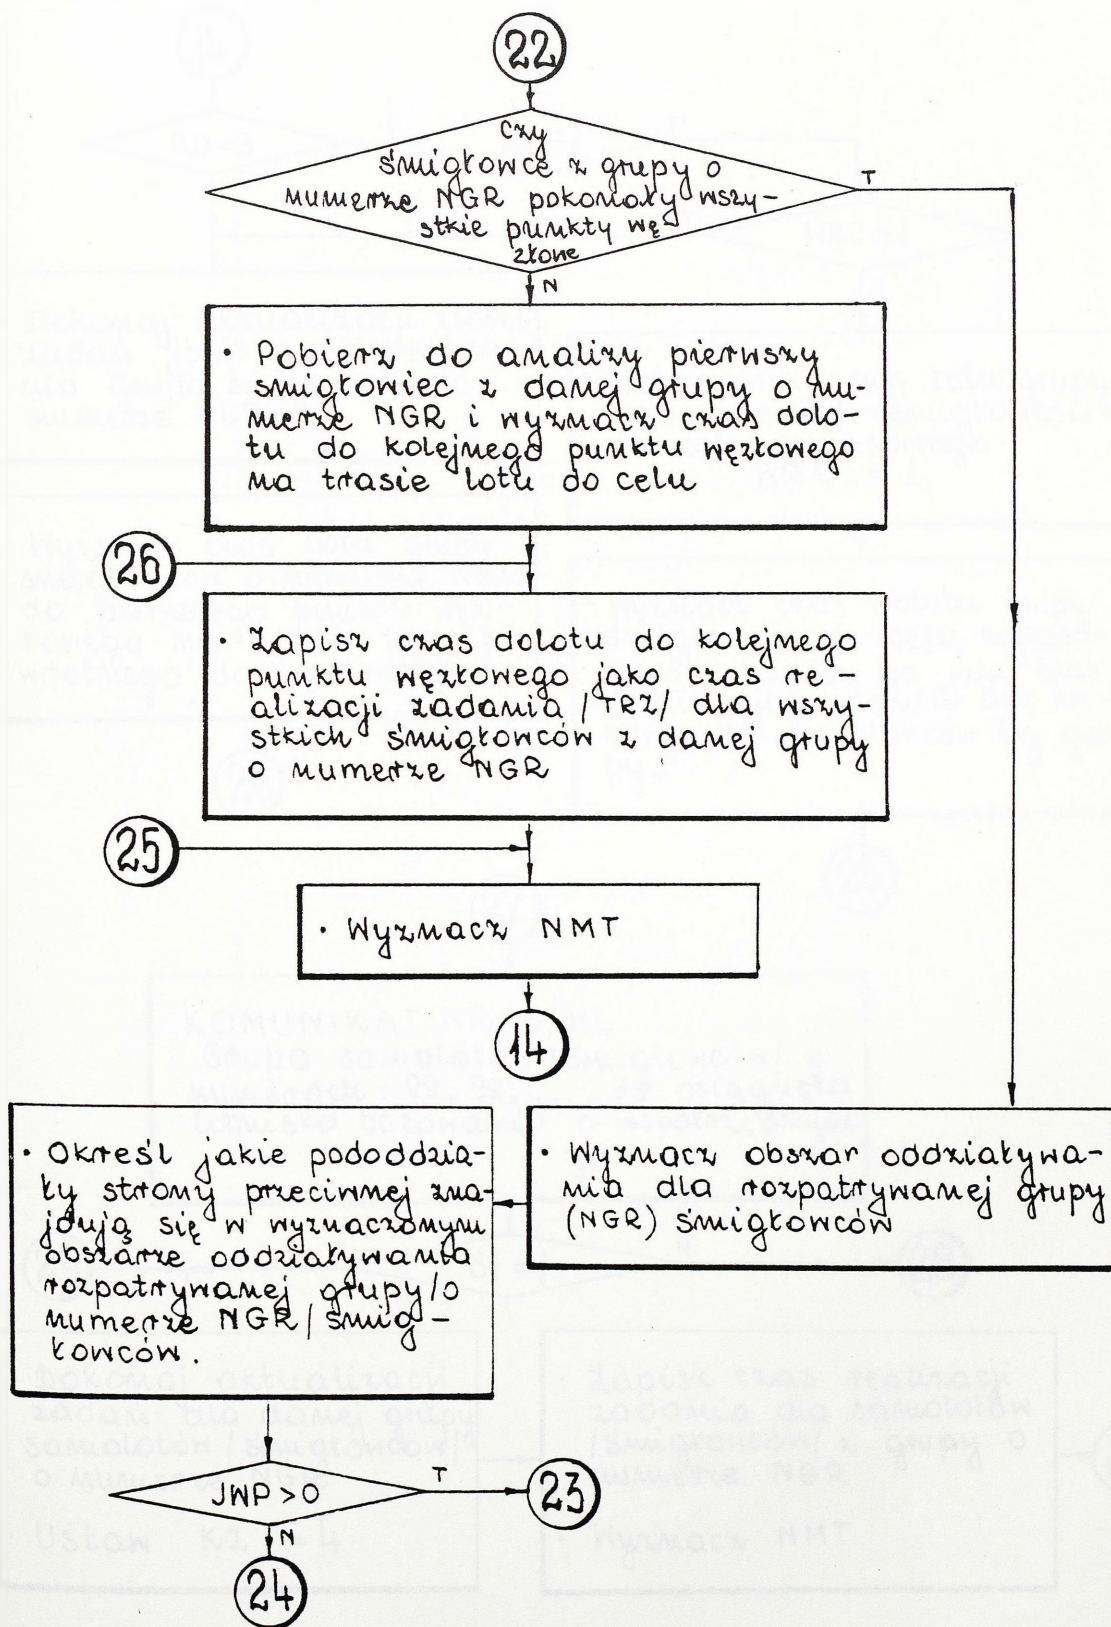 22
czy
śmigłowce z grupy o
numerze NGR pokonały wszy-
stkie punkty wę
złowe
T
N
· Pobierz do analizy pierwszy
śmigłowiec z danej grupy o nu-
merze NGR i wyznacz czas dolo-
tu do kolejnego punktu węzłowego
na trasie lotu do celu
26
· Zapisz czas dolotu do kolejnego
punktu węzłowego jako czas re-
alizacji zadania /TRZ/ dla wszy-
stkich śmigłowców z danej grupy
o numerze NGR
25
· Wyznacz NMT
14
· Wyznacz obszar oddziaływa-
nia dla rozpatrywanej grupy
(NGR) śmigłowców
· Określ jakie pododdzia-
ły strony przeciwnej zna-
jdują się w wyznaczonym
obszarze oddziaływania
rozpatrywanej grupy/o
numerze NGR/śmig-
łowców.
JWP > 0
T
23
N
24